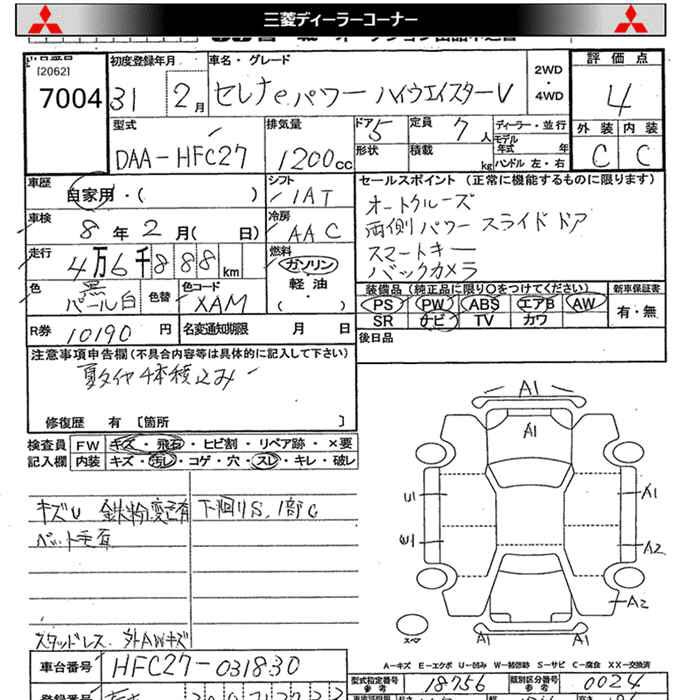 三菱ディーラーコーナー
[2062]
7004
初度登録年月
31 2月
車名・グレード
セレナeパワー ハイウエイスターV
2WD
・
4WD
評価点
4
外装 内装
C C
型式
DAA-HFC27
排気量
1200cc
ドア 5
形状
定員 7人
積載 kg
ディーラー・並行
モデル
年式 年
ハンドル 左・右
車歴
自家用・( )
シフト
IAT
車検
8年2月( 日)
冷房
AAC
走行
4万6千888km
燃料
ガソリン
軽油
・( )
色
黒
パール白
色替
色コード
XAM
R券
10190円
名変通知期限 月 日
セールスポイント (正常に機能するものに限ります)
オートクルーズ
両側パワースライドドア
スマートキー
バックカメラ
装備品(純正品に限り○をつけてください)
PS PW ABS エアB AW
SR ナビ TV カワ
新車保証書
有・無
後日品
注意事項申告欄(不具合内容等は具体的に記入して下さい)
夏タイヤ4本積込み
修復歴 有 [箇所 ]
検査員
記入欄
FW キズ・飛石・ヒビ割・リペア跡・×要
内装 キズ・汚レ・コゲ・穴・スレ・キレ・破レ
キズU 鉄粉変色有 下回りS、1部C
ペット毛有
スタッドレス 外AWキズ
A1
A1
U1
A1
A2
A2
A1 A1
スペア
A-キズ E-エクボ U-凹み W-補修跡 S-サビ C-腐食 XX-交換済
車台番号
HFC27-031830
型式指定番号
参考
18756
類別区分番号
参考
0024
登録番号